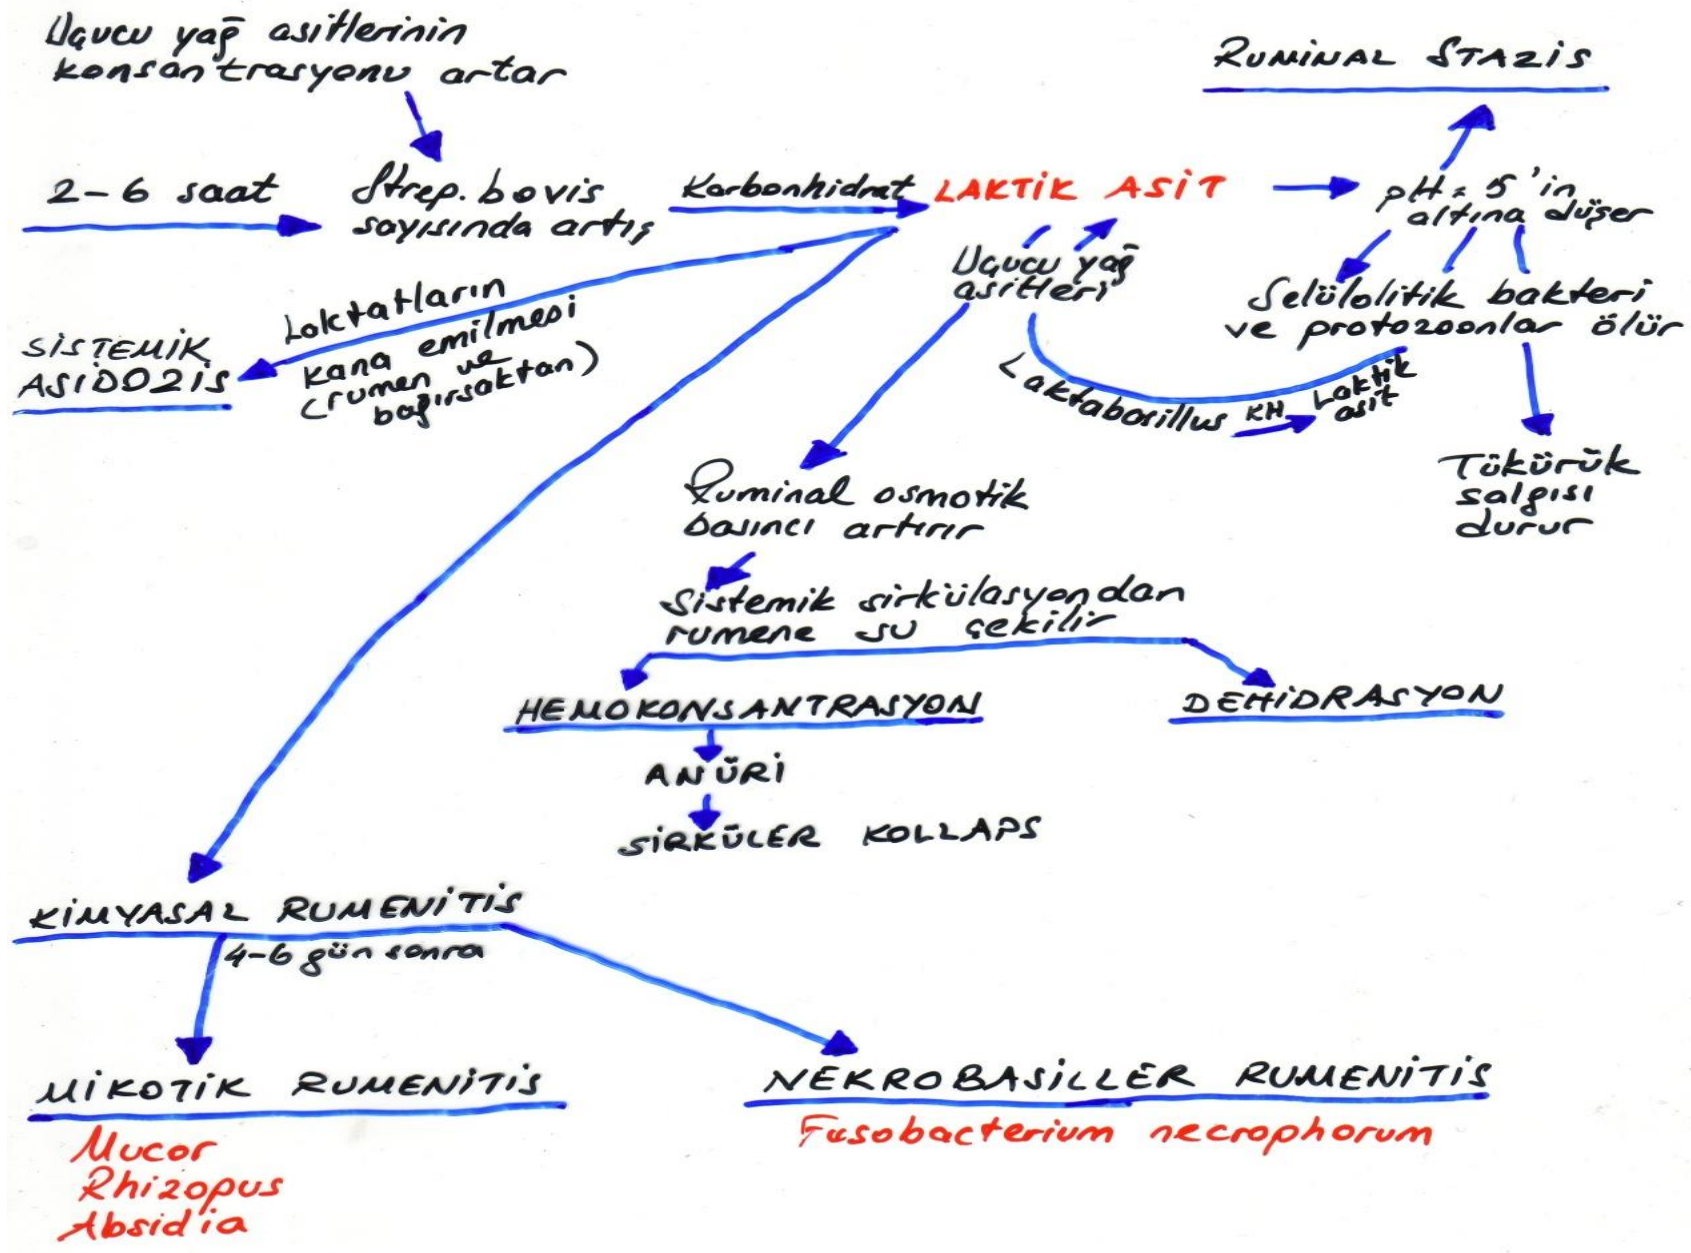 Uçucu yağ asitlerinin
konsantrasyonu artar
RUMİNAL STAZİS
2-6 saat
Strep. bovis
sayısında artış
Karbonhidrat
LAKTİK ASİT
pH = 5'in
altına düşer
Uçucu yağ
asitleri
Selülolitik bakteri
ve protozoonlar ölür
Laktatların
kana emilmesi
(rumen ve
bağırsaktan)
SİSTEMİK
ASİDOZİS
Laktabasillus KH Laktik
asit
Tükürük
salgısı
durur
Ruminal osmotik
basıncı artırır
Sistemik sirkülasyondan
rumene su çekilir
HEMOKONSANTRASYON
DEHİDRASYON
ANÜRİ
SİRKÜLER KOLLAPS
KİMYASAL RUMENİTİS
4-6 gün sonra
MİKOTİK RUMENİTİS
NEKROBASİLLER RUMENİTİS
Mucor
Rhizopus
Absidia
Fusobacterium necrophorum